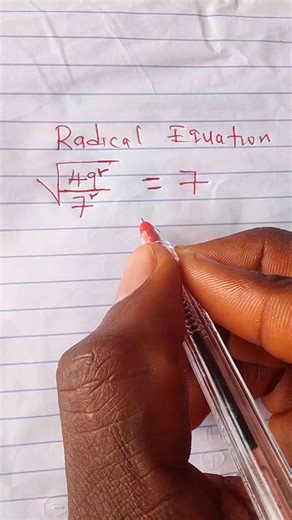 Radical Equation
√(49^r/7^r) = 7